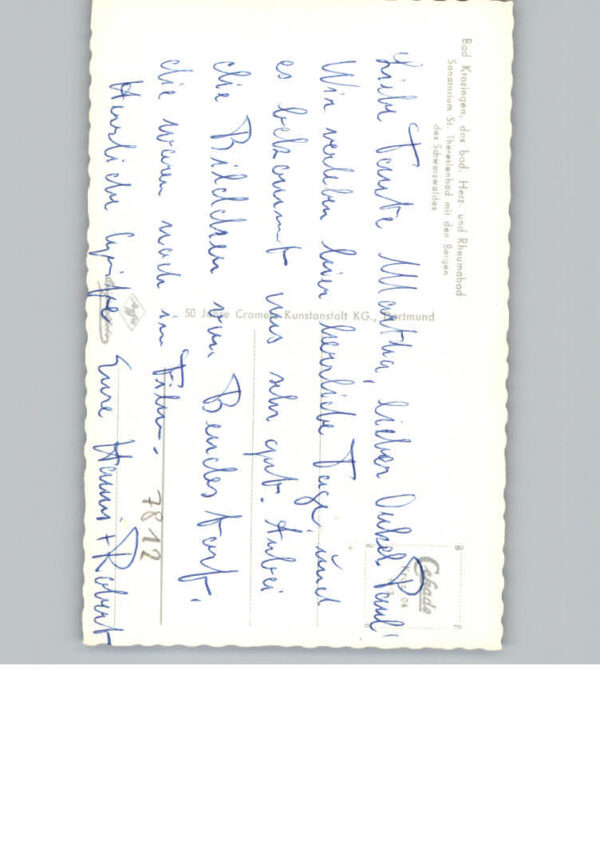 Bad Krozingen, das bad. Herz- und Rheumabad
Sanatorium St. Theresienbad mit den Bergen
des Schwarzwaldes
Liebe Tante Martha, lieber Onkel Paul!
Wir verleben hier herrliche Tage und
es bekommt uns sehr gut. Anbei
die Bildchen von Bendestorf,
die waren noch im Film.
Herzliche Grüße Eure Hanni + Robert
50 Jahre Cramers Kunstanstalt KG., Dortmund
Cekade
7812